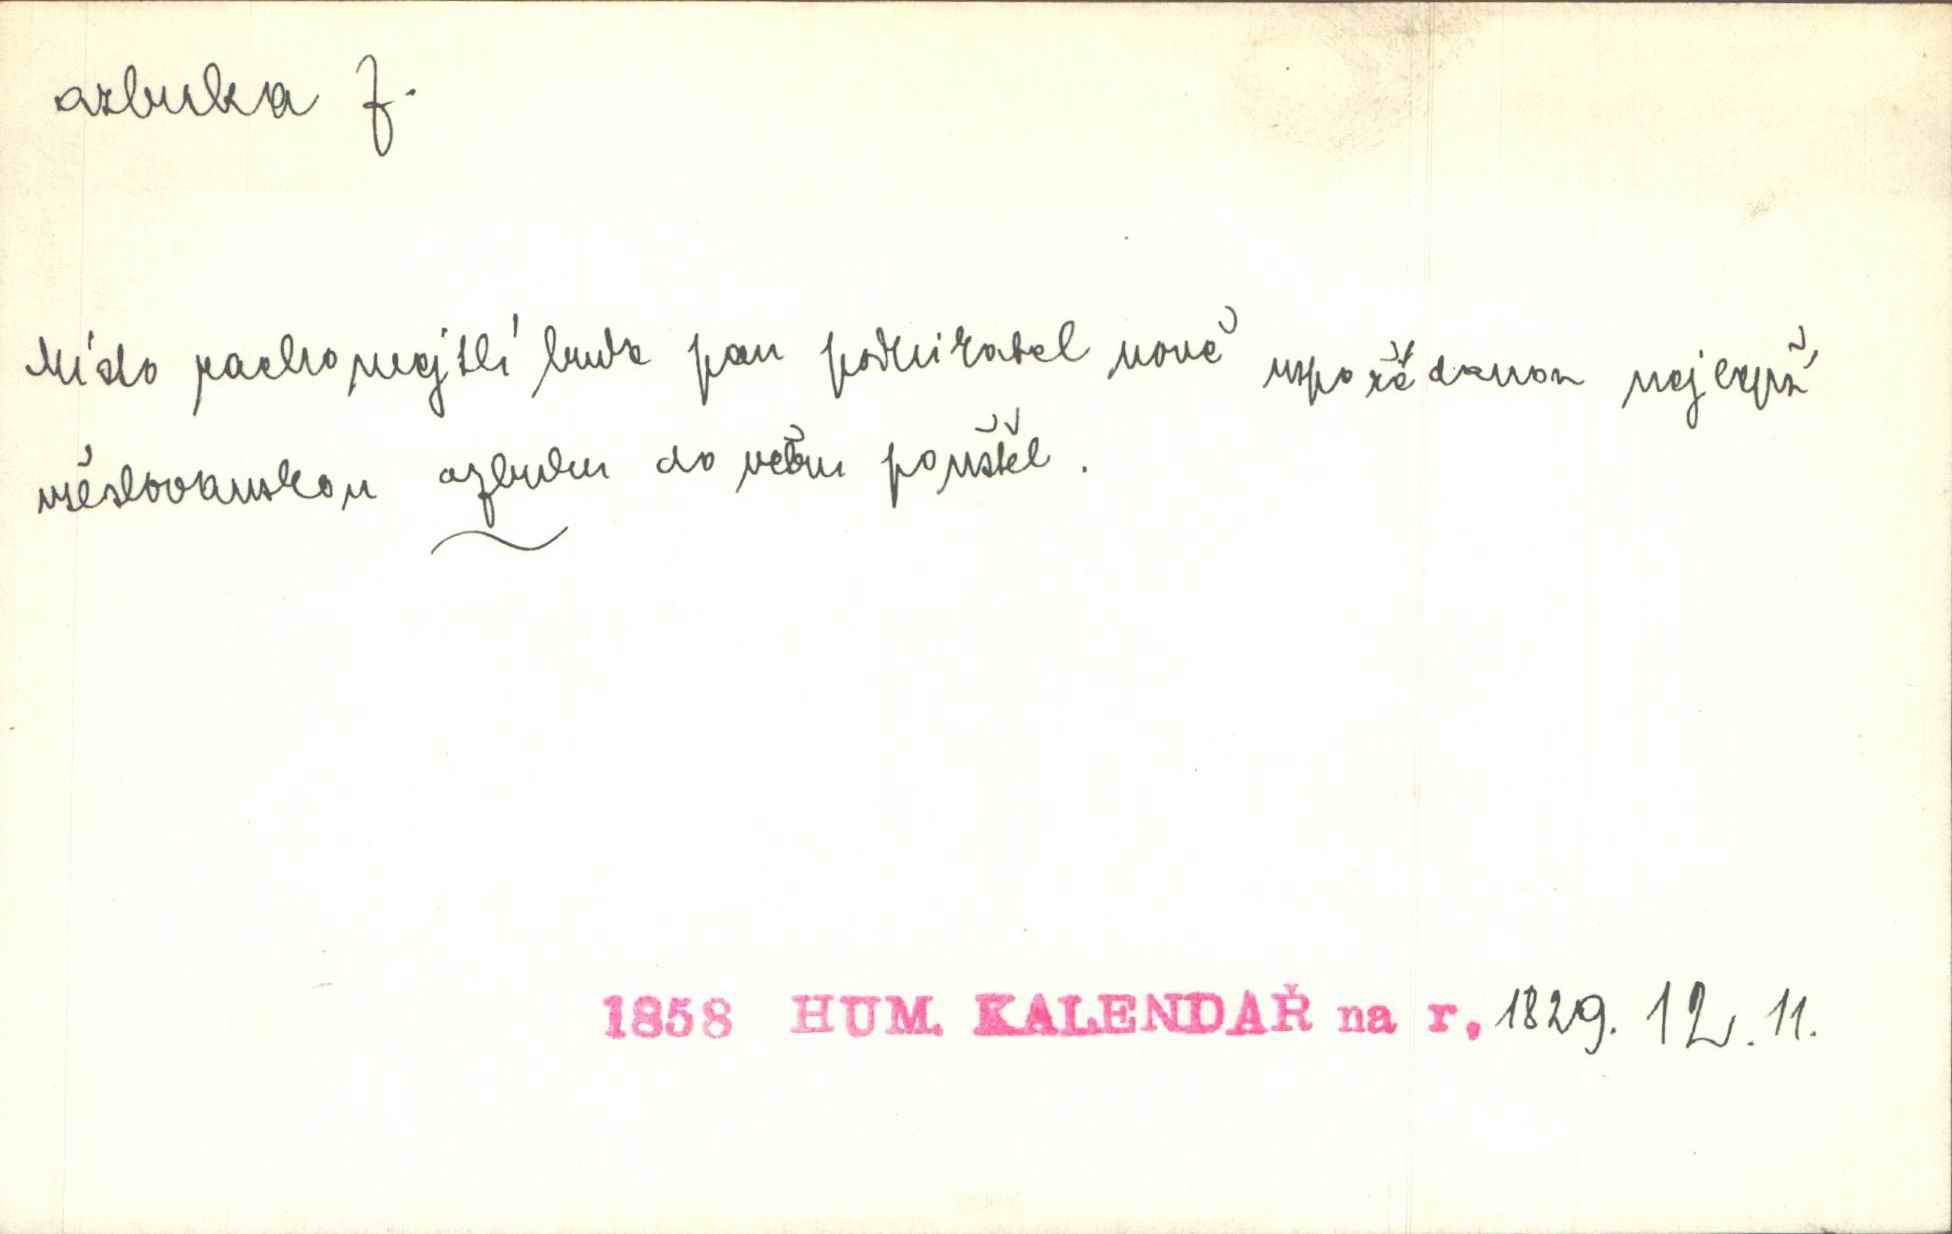 azbuka f.
Místo pachomejtlí bude pan podpiratel nově uspořádanou nejlepší
všeslovanskou azbuku do větru pouštěl.
1858 HUM. KALENDAŘ na r. 1829. 12. 11.